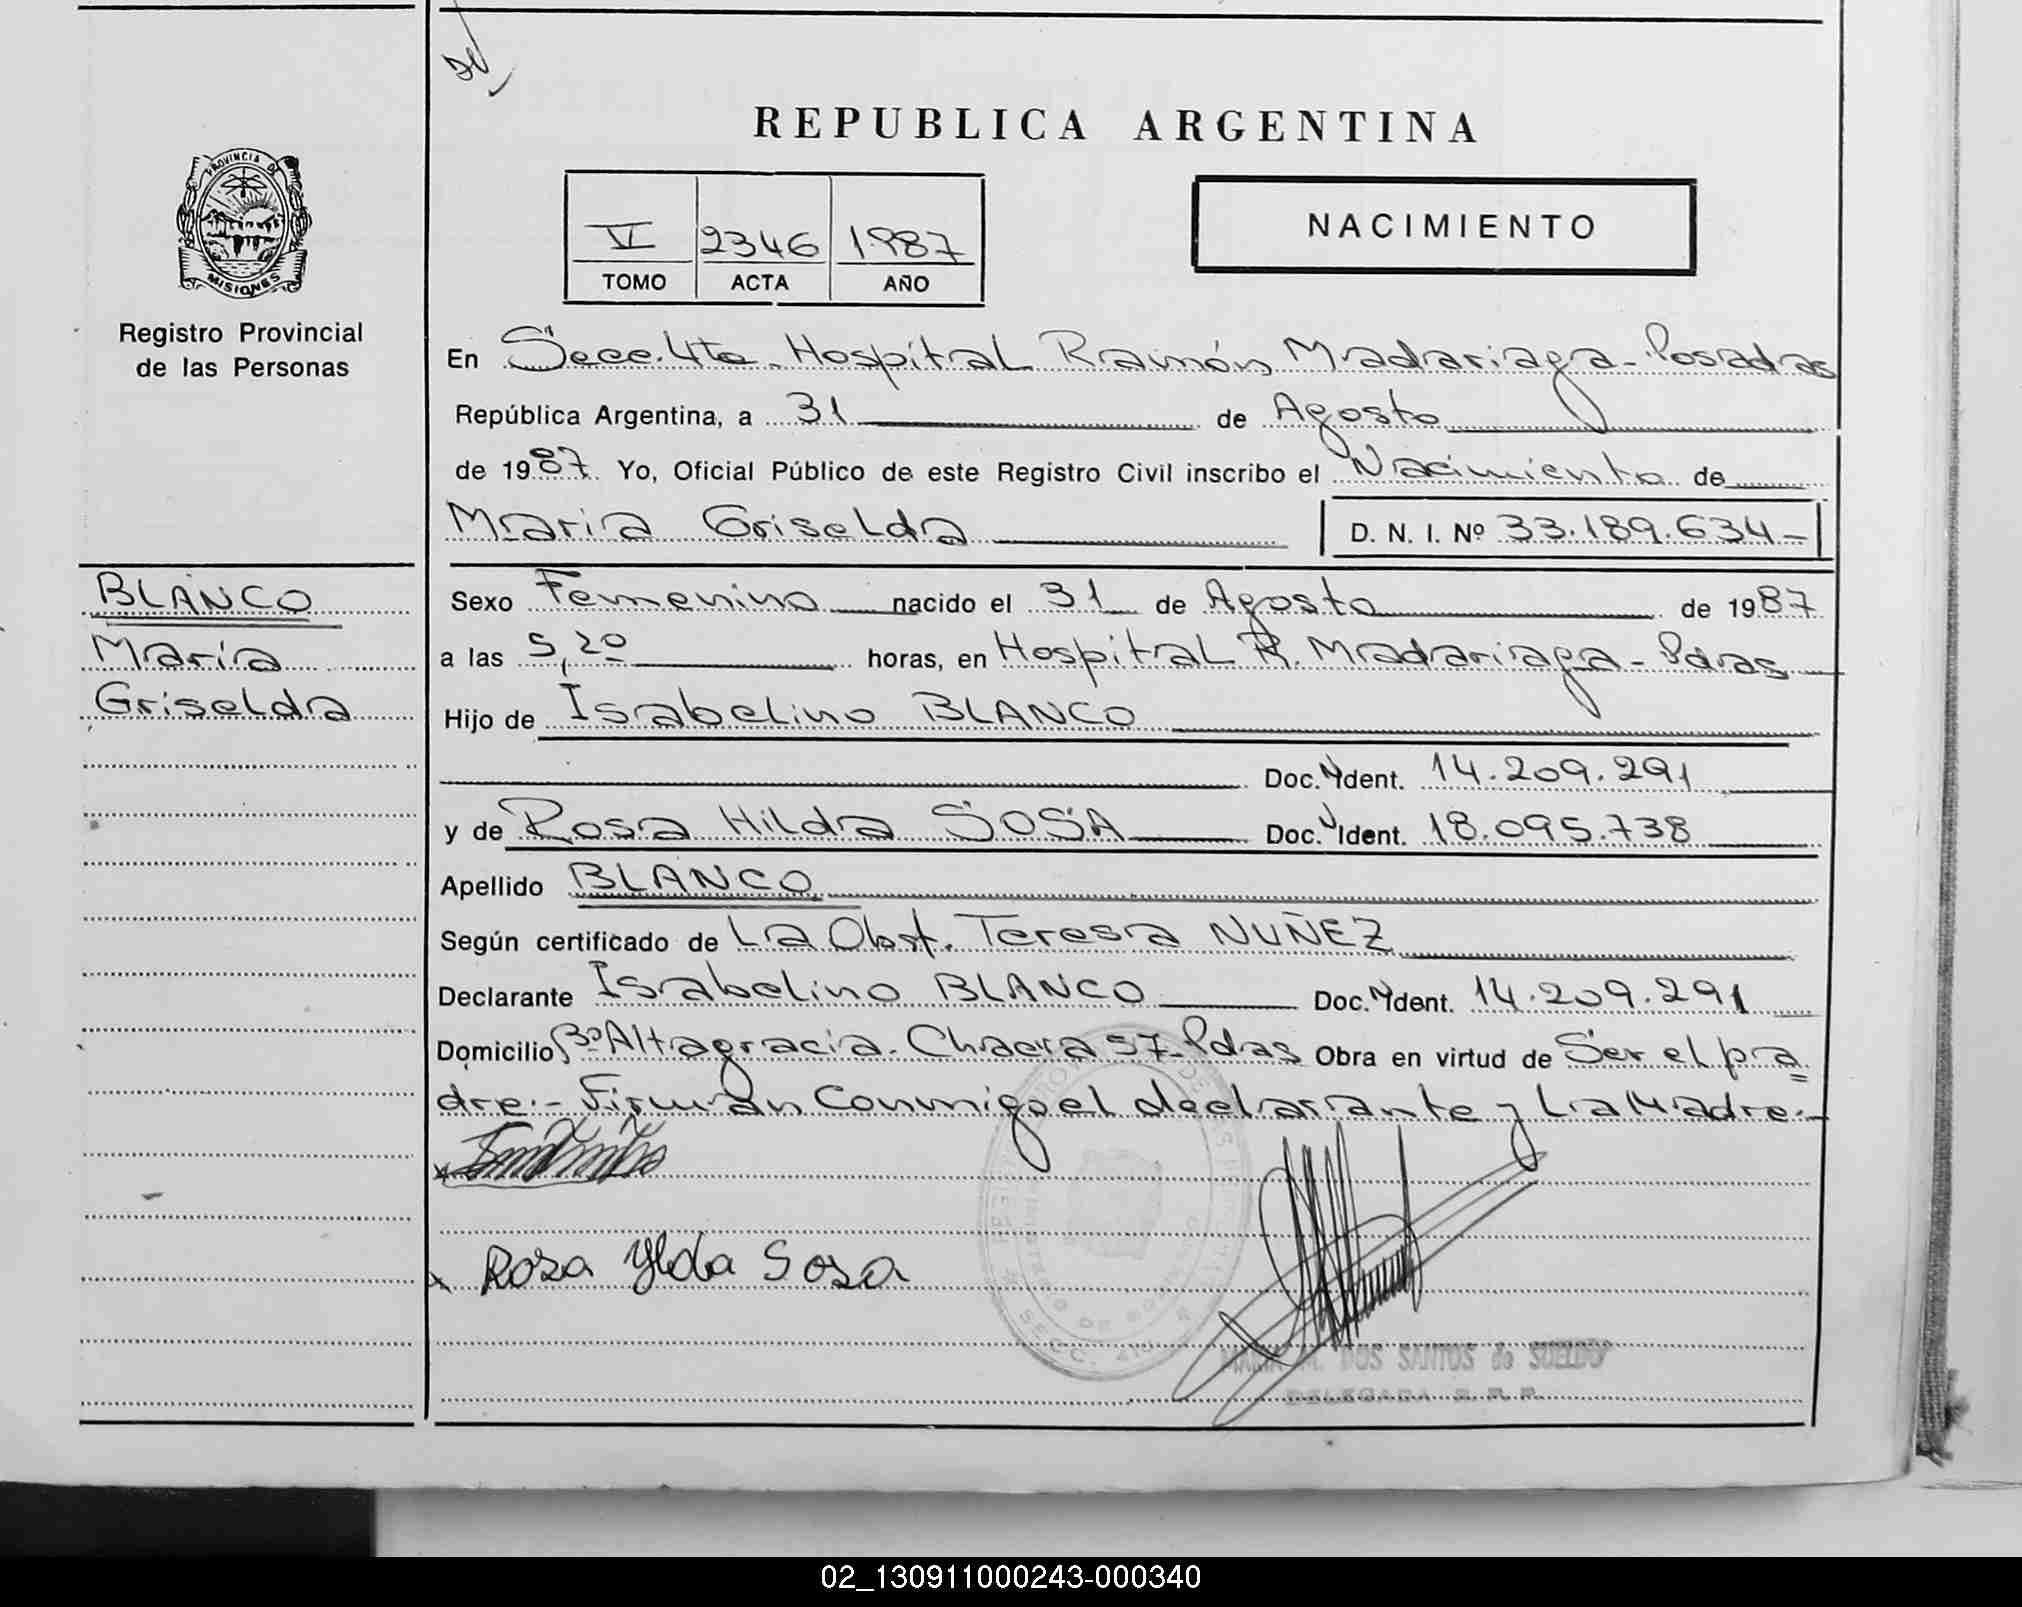 REPUBLICA ARGENTINA
PROVINCIA DE
MISIONES
Registro Provincial
de las Personas
VI 2346 1987
TOMO ACTA AÑO
NACIMIENTO
En Secc. 4ta. Hospital Ramón Madariaga - Posadas
República Argentina, a 31 de Agosto
de 1987. Yo, Oficial Público de este Registro Civil inscribo el Nacimiento de
Maria Griselda D. N. I. Nº 33.189.634-
BLANCO
María
Griselda
Sexo Femenino nacido el 31 de Agosto de 1987
a las 5,20 horas, en Hospital R. Madariaga - Pdas
Hijo de Isabelino BLANCO
Doc. Ident. 14.209.291
y de Rosa Hilda SOSA Doc. Ident. 18.095.738
Apellido BLANCO
Según certificado de La Obst. Teresa NUÑEZ
Declarante Isabelino BLANCO Doc. Ident. 14.209.291
Domicilio Bº Altagracia. Chacra 57 - Pdas Obra en virtud de Ser el pa
dre.- Firman Conmigo el declarante y La Madre.-
Rosa Ylda Sosa
MARIA M. DOS SANTOS de SUELDO
DELEGADA R. P. P.
02_130911000243-000340